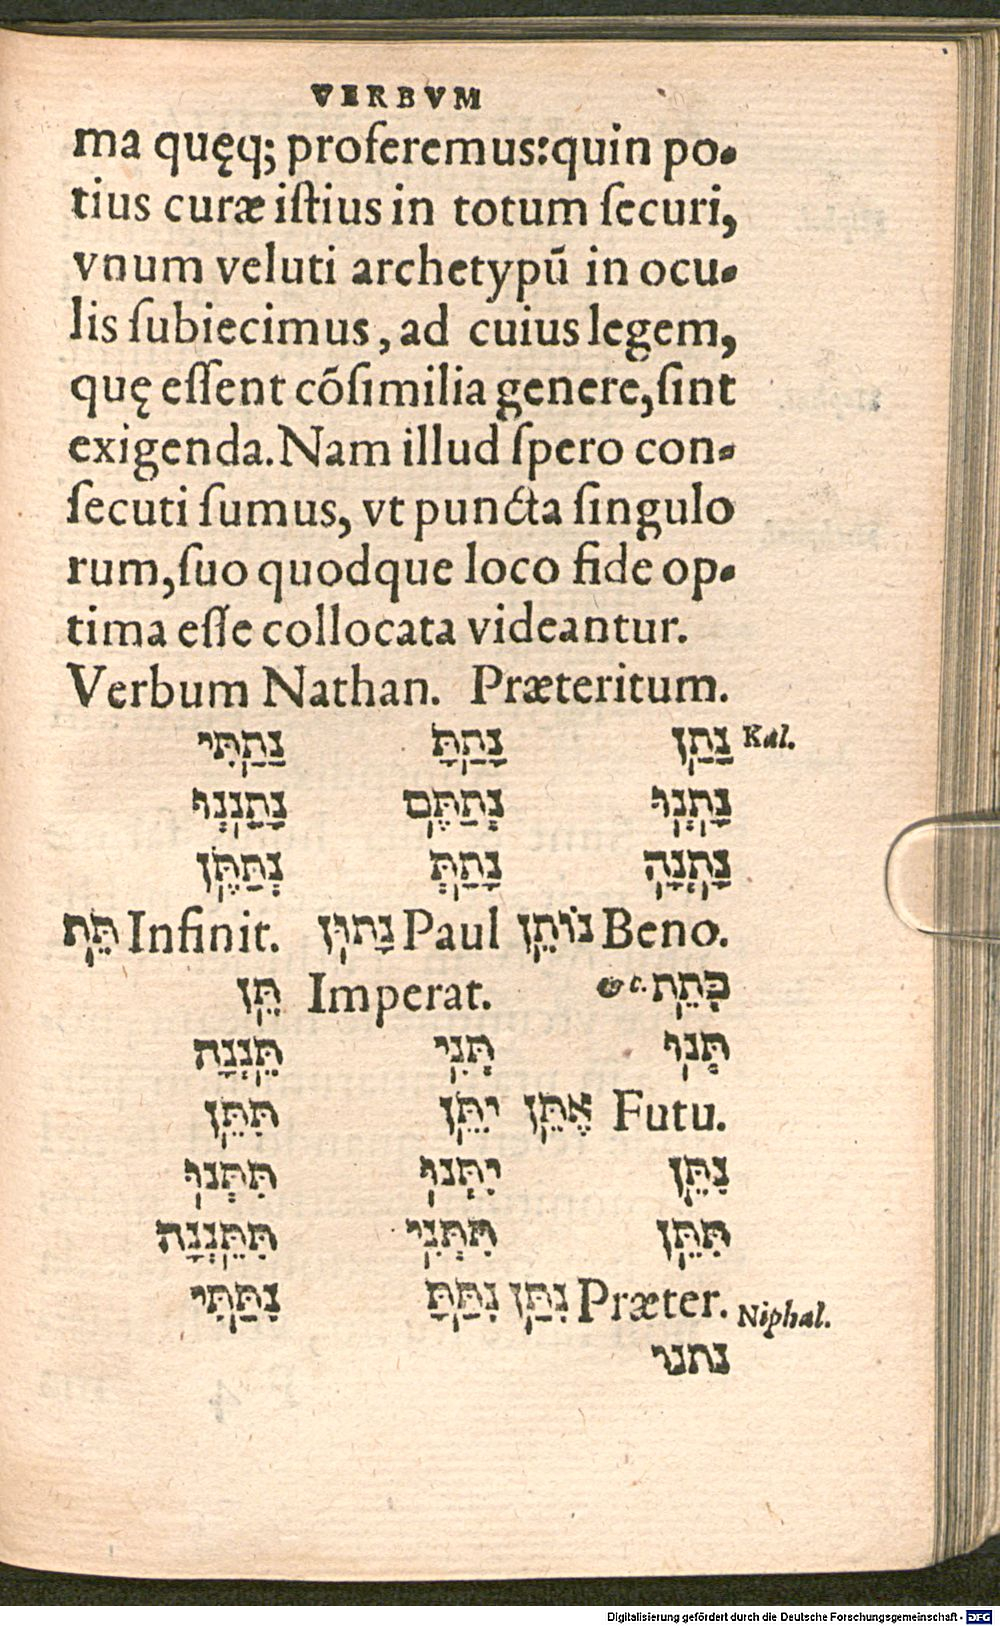 VERBVM
ma quęq; proferemus:quin po-
tius curæ iſtius in totum ſecuri,
vnum veluti archetypū in ocu-
lis ſubiecimus, ad cuius legem,
quę eſſent cōſimilia genere, ſint
exigenda. Nam illud ſpero con-
ſecuti ſumus, vt puncta ſingulo
rum, ſuo quodque loco fide op-
tima eſſe collocata videantur.
Verbum Nathan. Præteritum.
Kal. נָתַן נָתַתָּ נָתַתִּי
נָתְנוּ נְתַתֶּם נָתַנְנוּ
נָתְנָה נָתַתְּ נְתַתֶּן
Beno. נוֹתֵן Paul נָתוּן Infinit. תֵּת
כְּתֵת &c. Imperat. תֵּן
תְּנוּ תְּנִי תֵּנְנָה
Futu. אֶתֵּן יִתֵּן תִּתֵּן
נִתֵּן יִתְּנוּ תִּתְּנוּ
תִּתֵּן תִּתְּנִי תִּתֵּנְנָה
Niphal. Præter. נִתַּן נִתַּתָּ נִתַּתִּי
נתנו
Digitalisierung gefördert durch die Deutsche Forschungsgemeinschaft - DFG